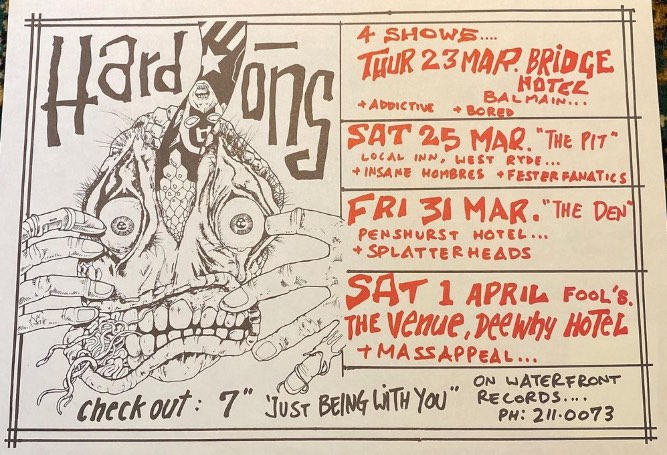 Hard Ōns
4 SHOWS....
THUR 23 MAR. BRIDGE
HOTEL
BALMAIN...
+ ADDICTIVE + BORED
SAT 25 MAR. "THE PIT"
LOCAL INN, WEST RYDE...
+ INSANE HOMBRES + FESTER FANATICS
FRI 31 MAR. "THE DEN"
PENSHURST HOTEL...
+ SPLATTERHEADS
SAT 1 APRIL FOOL'S.
THE Venue, Dee Why HoTeL
+ MASSAPPEAL...
check out: 7" "JUST BEiNG WiTH YOU"
ON WATERFRONT
RECORDS....
PH: 211·0073